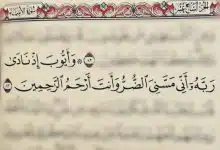 ۸۲ ۞ وَأَيُّوبَ إِذْ نَادَىٰ
رَبَّهُۥٓ أَنِّي مَسَّنِيَ ٱلضُّرُّ وَأَنتَ أَرْحَمُ ٱلرَّٰحِمِينَ ۸۳